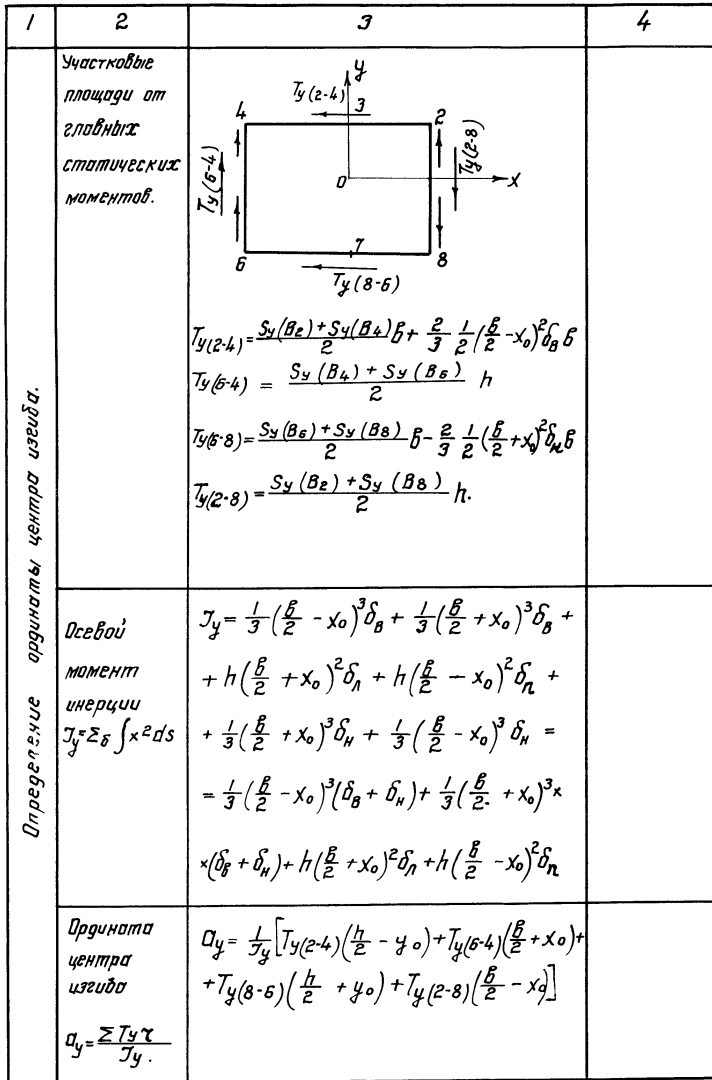 1 2 3 4
Определение ординаты центра изгиба.
Участковые
площади от
главных
статических
моментов.
y
Ty(2-4)
4 3 2
Ty(6-4)
Ty(2-8)
0 x
6 7 8
Ty(8-6)
Ty(2-4)=(Sy(B2)+Sy(B4))/2 в + 2/3 1/2 (в/2 - x₀)²δв в
Ty(6-4) = (Sy(B4) + Sy(B6))/2 h
Ty(6-8)=(Sy(B6)+Sy(B8))/2 в - 2/3 1/2 (в/2 + x₀)²δн в
Ty(2-8)=(Sy(B2)+Sy(B8))/2 h.
Осевой
момент
инерции
Jy=Σδ∫x²ds
Jy = 1/3(в/2 - x₀)³δв + 1/3(в/2 + x₀)³δв +
+ h(в/2 + x₀)²δл + h(в/2 - x₀)²δп +
+ 1/3(в/2 + x₀)³δн + 1/3(в/2 - x₀)³δн =
= 1/3(в/2 - x₀)³(δв + δн) + 1/3(в/2 + x₀)³×
×(δв + δн) + h(в/2 + x₀)²δл + h(в/2 - x₀)²δп
Ордината
центра
изгиба
ay = ΣTyτ/Jy.
ay = 1/Jy[Ty(2-4)(h/2 - y₀) + Ty(6-4)(в/2 + x₀) +
+ Ty(8-6)(h/2 + y₀) + Ty(2-8)(в/2 - x₀)]